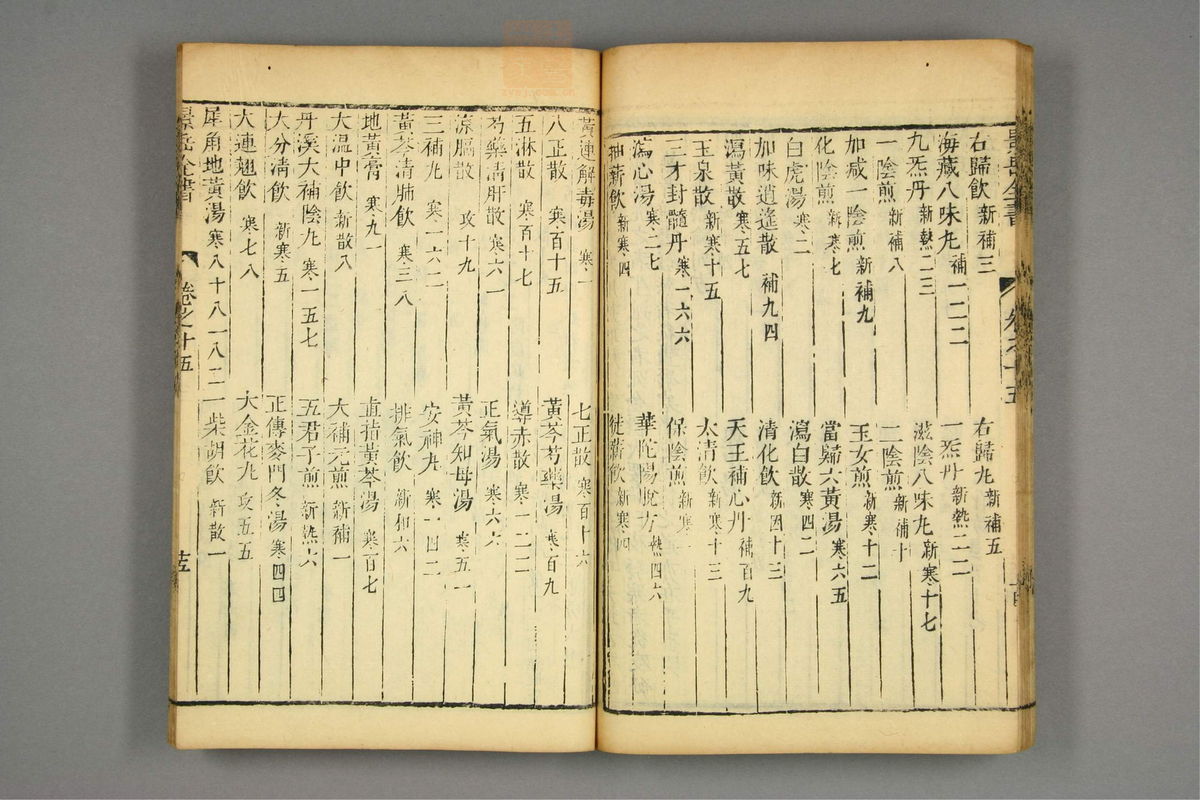 景岳全書 卷之十五
右歸飲 新補三 右歸丸 新補五
海藏八味丸 補一二二 一炁丹 新熱二二
九炁丹 新熱二三 滋陰八味丸 新寒十七
一陰煎 新補八 二陰煎 新補十
加减一陰煎 新補九 玉女煎 新寒十二
化陰煎 新寒七 當歸六黃湯 寒六五
白虎湯 寒二 瀉白散 寒四二
加味逍遙散 補九四 清化飲 新因十三
瀉黃散 寒五七 天王補心丹 補百九
玉泉散 新寒十五 太清飲 新寒十三
三才封髓丹 寒一六六 保陰煎 新寒一
瀉心湯 寒二七 華陀陽脫方 熱四六
抽薪飲 新寒四 徙薪飲 新寒四
黃連解毒湯 寒一 七正散 寒百十六
八正散 寒百十五 黃芩芍藥湯 寒百九
五淋散 寒百十七 導赤散 寒一二二
芍藥清肝散 寒六一 正氣湯 寒六六
涼膈散 攻十九 黃芩知母湯 寒五一
三補丸 寒一六二 安神丸 寒一四二
黃芩清肺飲 寒三八 排氣飲 新和六
地黃膏 寒九一 直指黃芩湯 寒百七
大温中飲 新散八 大補元煎 新補一
丹溪大補陰丸 寒一五七 五君子煎 新熱六
大分清飲 新寒五 正傳麥門冬湯 寒四四
大連翹飲 寒七八 大金花丸 攻五五
犀角地黃湯 寒八十八一八二 柴胡飲 新散一
景岳全書 卷之十五 十五